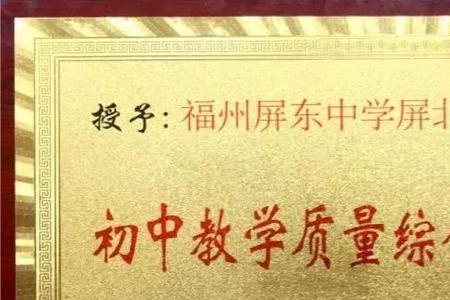 授予:福州屏东中学屏北
初中教学质量综